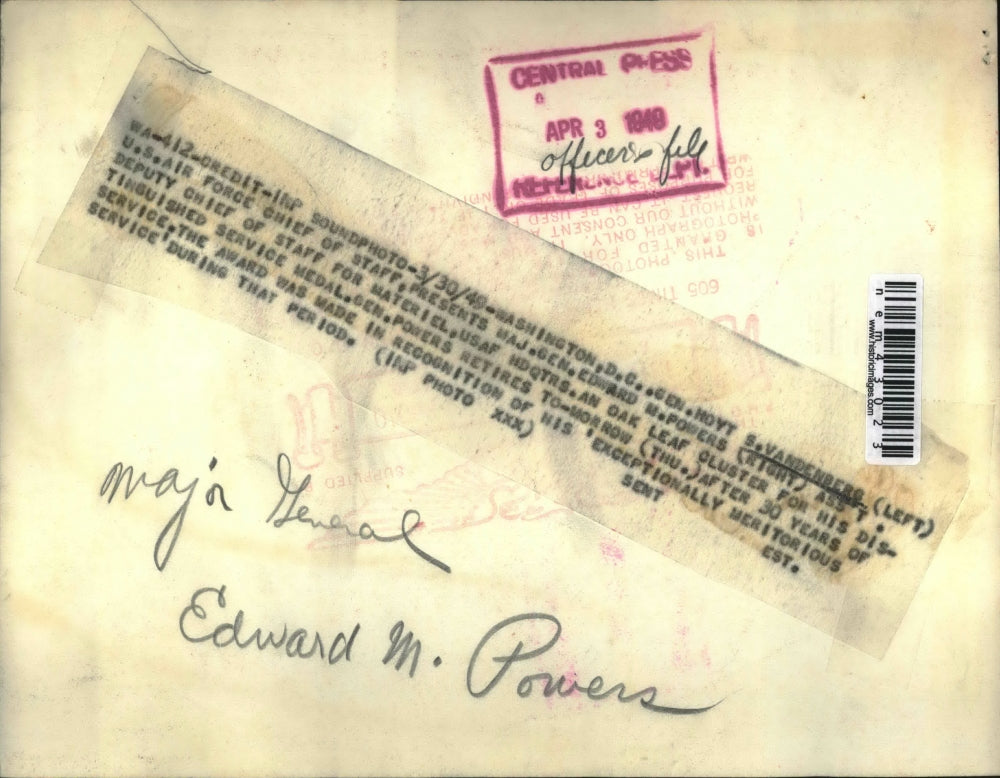 CENTRAL PRESS
APR 3 1949
officers file
REFERENCE DEPT.
WA-412-CREDIT-INP SOUNDPHOTO-3/30/49-WASHINGTON,D.C..GEN.HOYT S.VANDENBERG (LEFT)
U.S.AIR FORCE CHIEF OF STAFF,PRESENTS MAJ.GEN.EDWARD M.POWERS (RIGHT) ASS'T.
DEPUTY CHIEF OF STAFF FOR MATERIEL,USAF HDQTRS.AN OAK LEAF CLUSTER FOR HIS DIS-
TINGUISHED SERVICE MEDAL.GEN.POWERS RETIRES TO-MORROW (THU.)AFTER 30 YEARS OF
SERVICE.THE AWARD WAS MADE IN RECOGNITION OF HIS 'EXCEPTIONALLY MERITORIOUS
SERVICE'DURING THAT PERIOD. (INP PHOTO XXX) SENT EST.
THIS PHOTO
IS GRANTED FOR
PHOTOGRAPH ONLY.
WITHOUT OUR CONSENT
605
SUPPLIED
nem43023
www.historicimages.com
Major General
Edward M. Powers